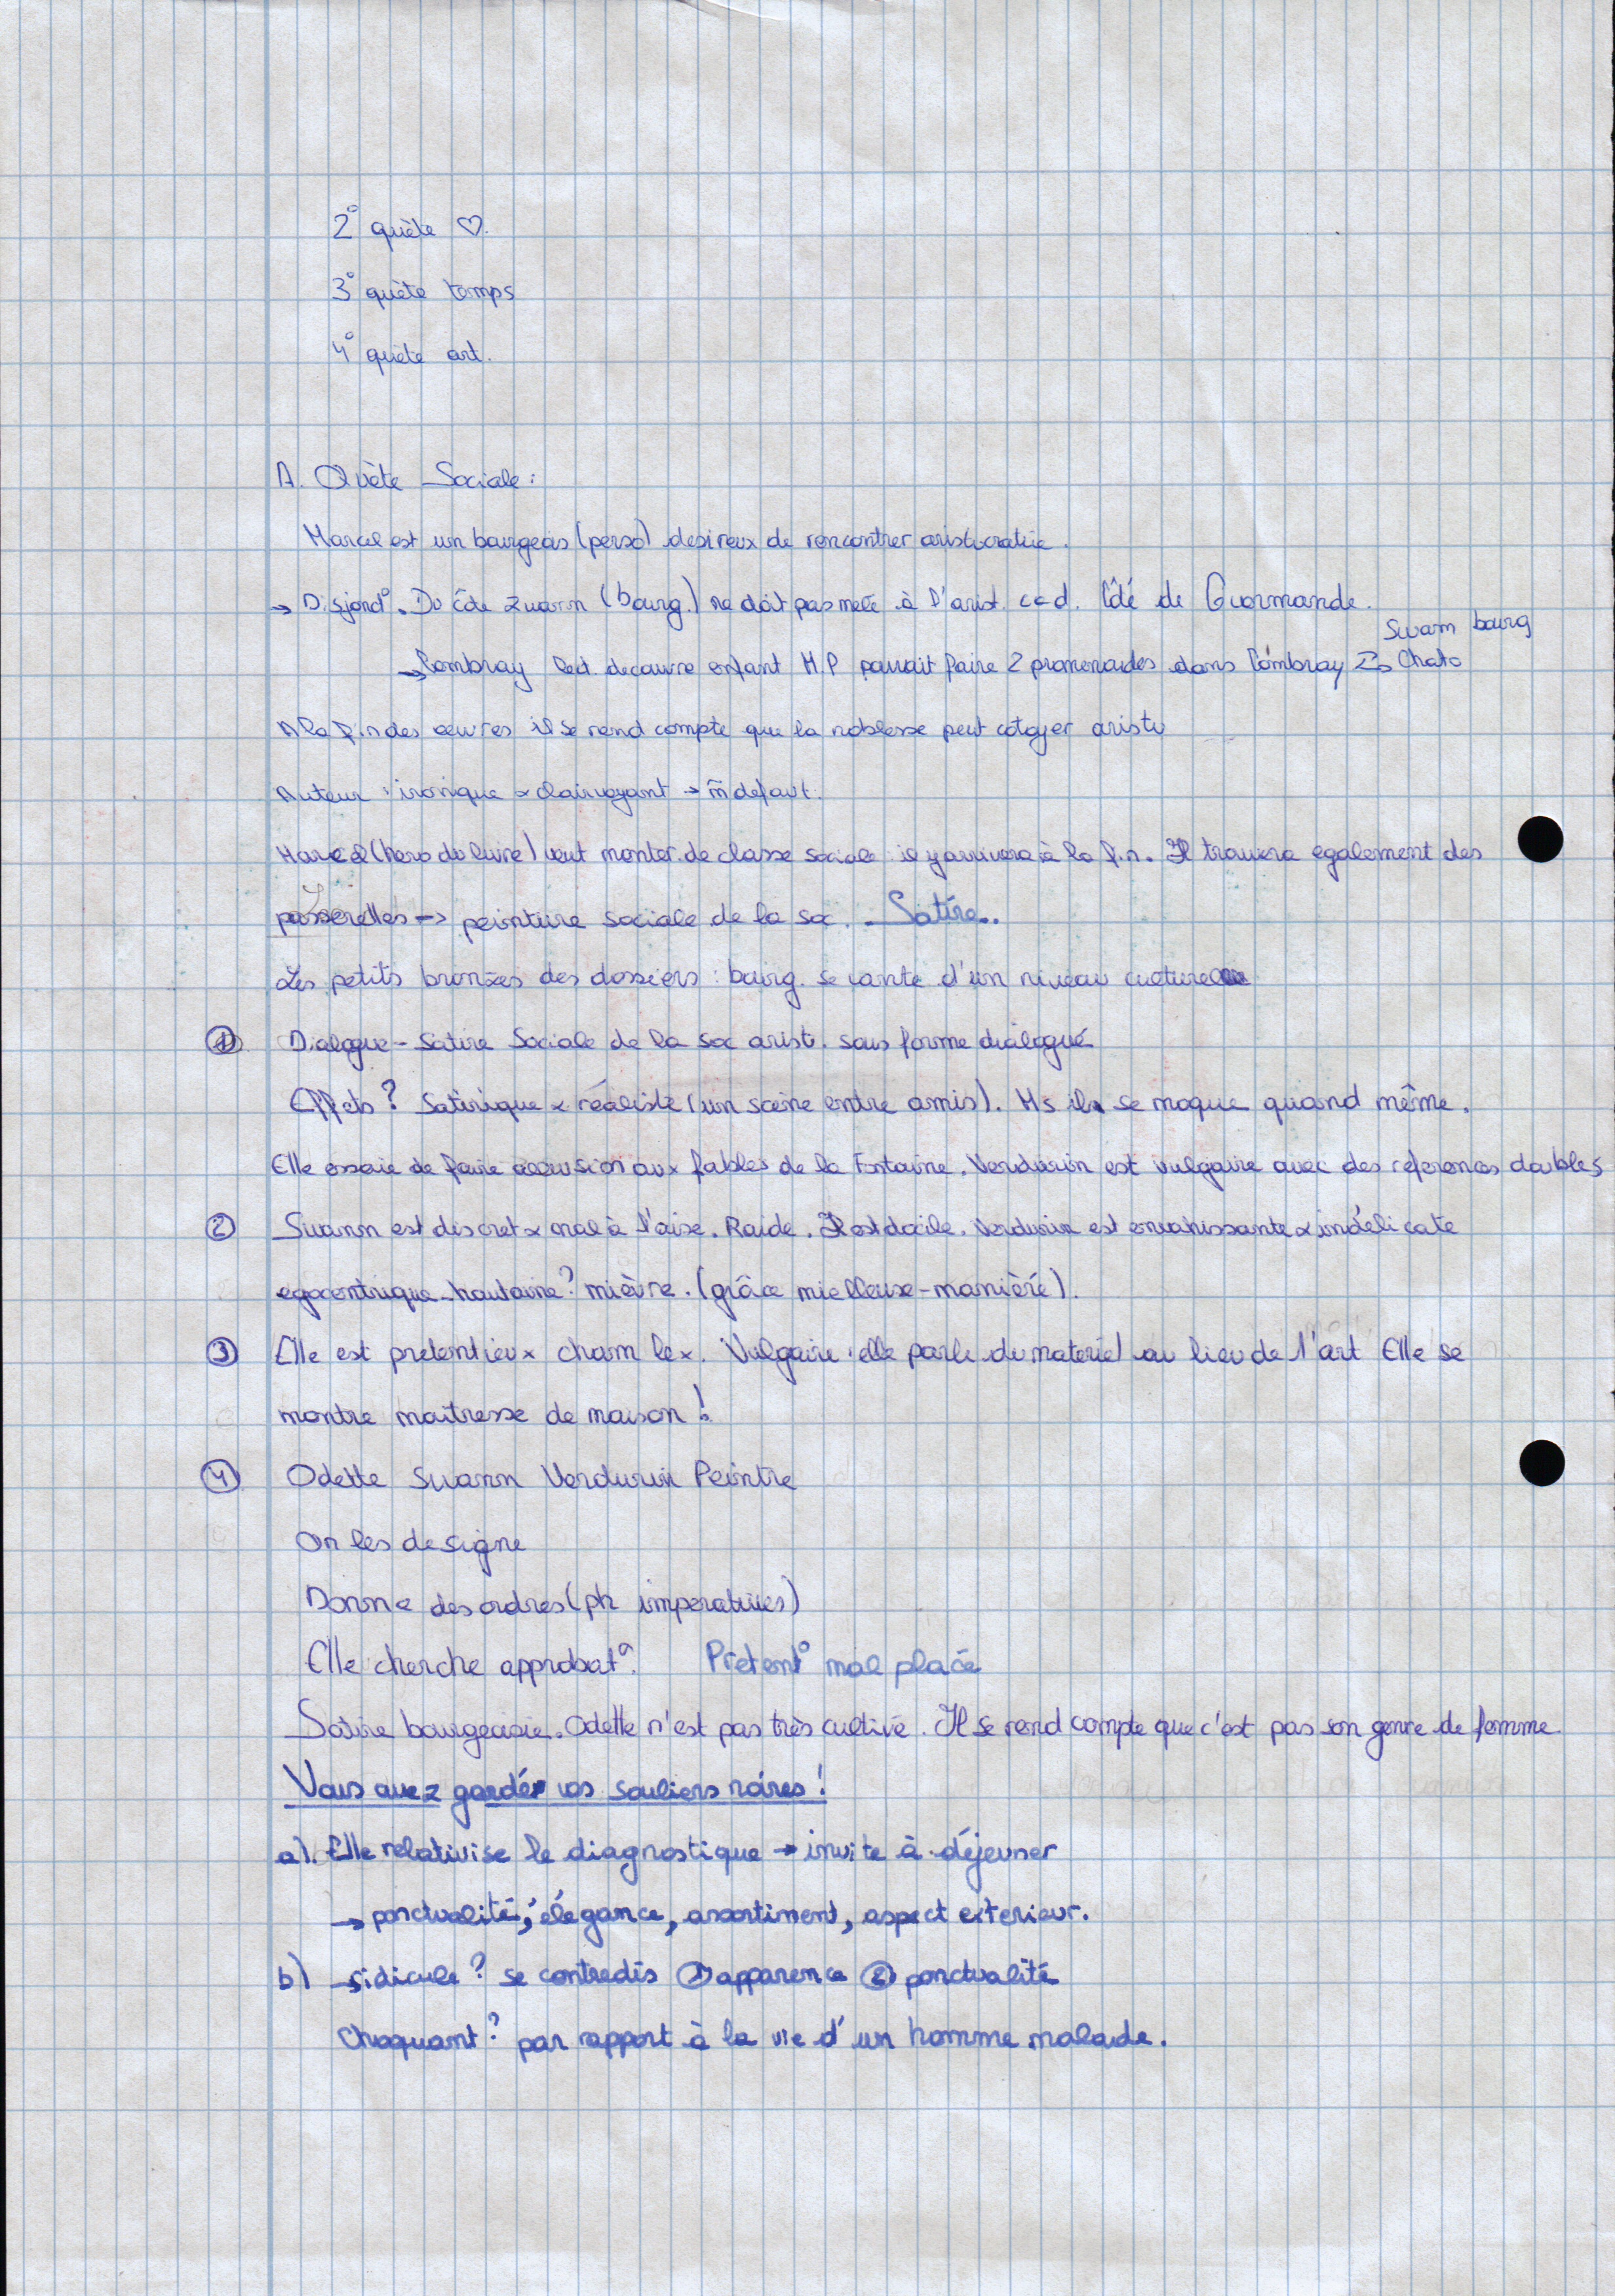 2° quète ♡.
3° quète temps
4° quète art.
A. Quète Sociale :
Marcel est un bourgeois (perso) desireux de rencontrer aristocratie.
→ Disjonct°. Du côte Zwann (bourg.) ne doit pas mele à l'arist. cad. Côté de Guormande.
Swam bourg
→ Combray led. decouvre enfant M.P pouvait faire 2 promenades dans Combray → Chato
A la fin des œuvres il se rend compte que la noblesse peut cotoyer aristo
Auteur : ironique & clairvoyant → m̃ defaut.
Marcel (hero du livre) veut monter de classe sociale il y arrivera à la fin. Il trouvera egalement des
passerelles → peinture sociale de la soc. Satire..
Les petits bronzes des dossiers : bourg. se vante d'un niveau culturel
① Dialogue - Satire Sociale de la soc arist. sous forme dialogué
Effets ? Satirique & réaliste (un scène entre amis). Ms il se moque quand même.
Elle essaie de faire allusion aux fables de la Fontaine. Verdurin est vulgaire avec des references doubles
② Swann est discret & mal à l'aise. Raide. Il est docile. Verdurin est envahissante & indélicate
egocentrique - hautaine ? mièvre. (grâce mielleuse - manièré).
③ Elle est pretentieux cham lex. Vulgaire : elle parle du materiel au lieu de l'art Elle se
montre maitresse de maison !
④ Odette Swann Verdurin Peintre
On les designe
Donne des ordres (ph imperatives)
Elle cherche approbat°. Prétent° mal placé
Satire bourgeoisie. Odette n'est pas très cultivé. Il se rend compte que c'est pas son genre de femme
Vous avez gardé vos souliers noires !
a). Elle relativise le diagnostique → invite à déjeuner
→ ponctualité, élégance, assortiment, aspect exterieur.
b) ridicule ? se contredis ① apparence ② ponctualité
Choquant ? par rapport à la vie d'un homme malade.